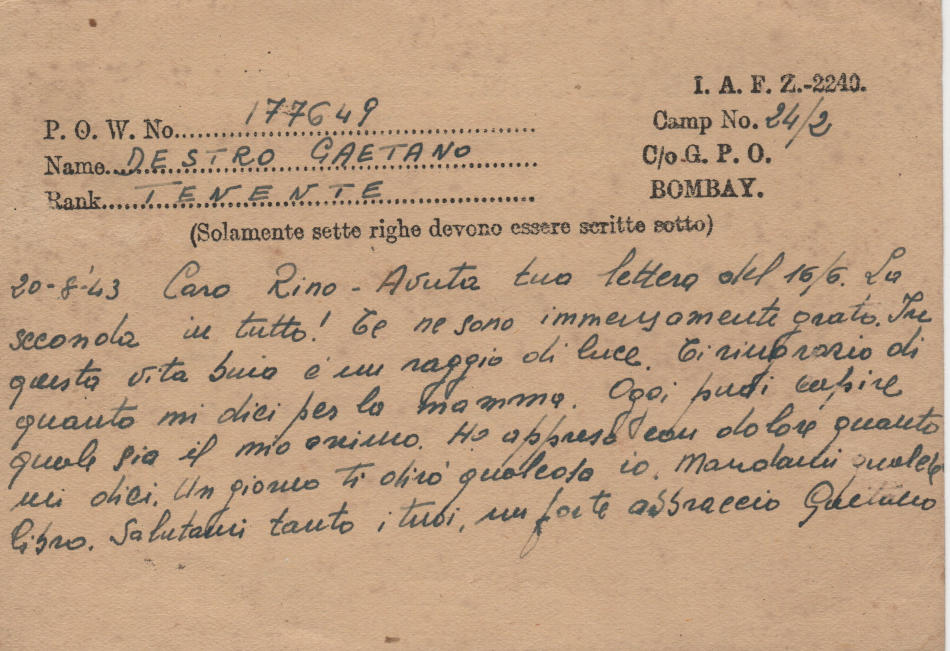 I. A. F. Z.-2240.
P. O. W. No. 177649
Camp No. 24/2
Name DESTRO GAETANO
C/o G. P. O.
Rank TENENTE
BOMBAY.
(Solamente sette righe devono essere scritte sotto)
20-8-'43 Caro Rino - Avuta tua lettera del 16/6. La
seconda in tutto! Te ne sono immensamente grato. In
questa vita buia è un raggio di luce. Ti ringrazio di
quanto mi dici per la mamma. Oggi puoi capire
quale sia il mio animo. Ho appreso con dolore quanto
mi dici. Un giorno ti dirò qualcosa io. Mandami qualche
libro. Salutami tanto i tuoi, un forte abbraccio Gaetano